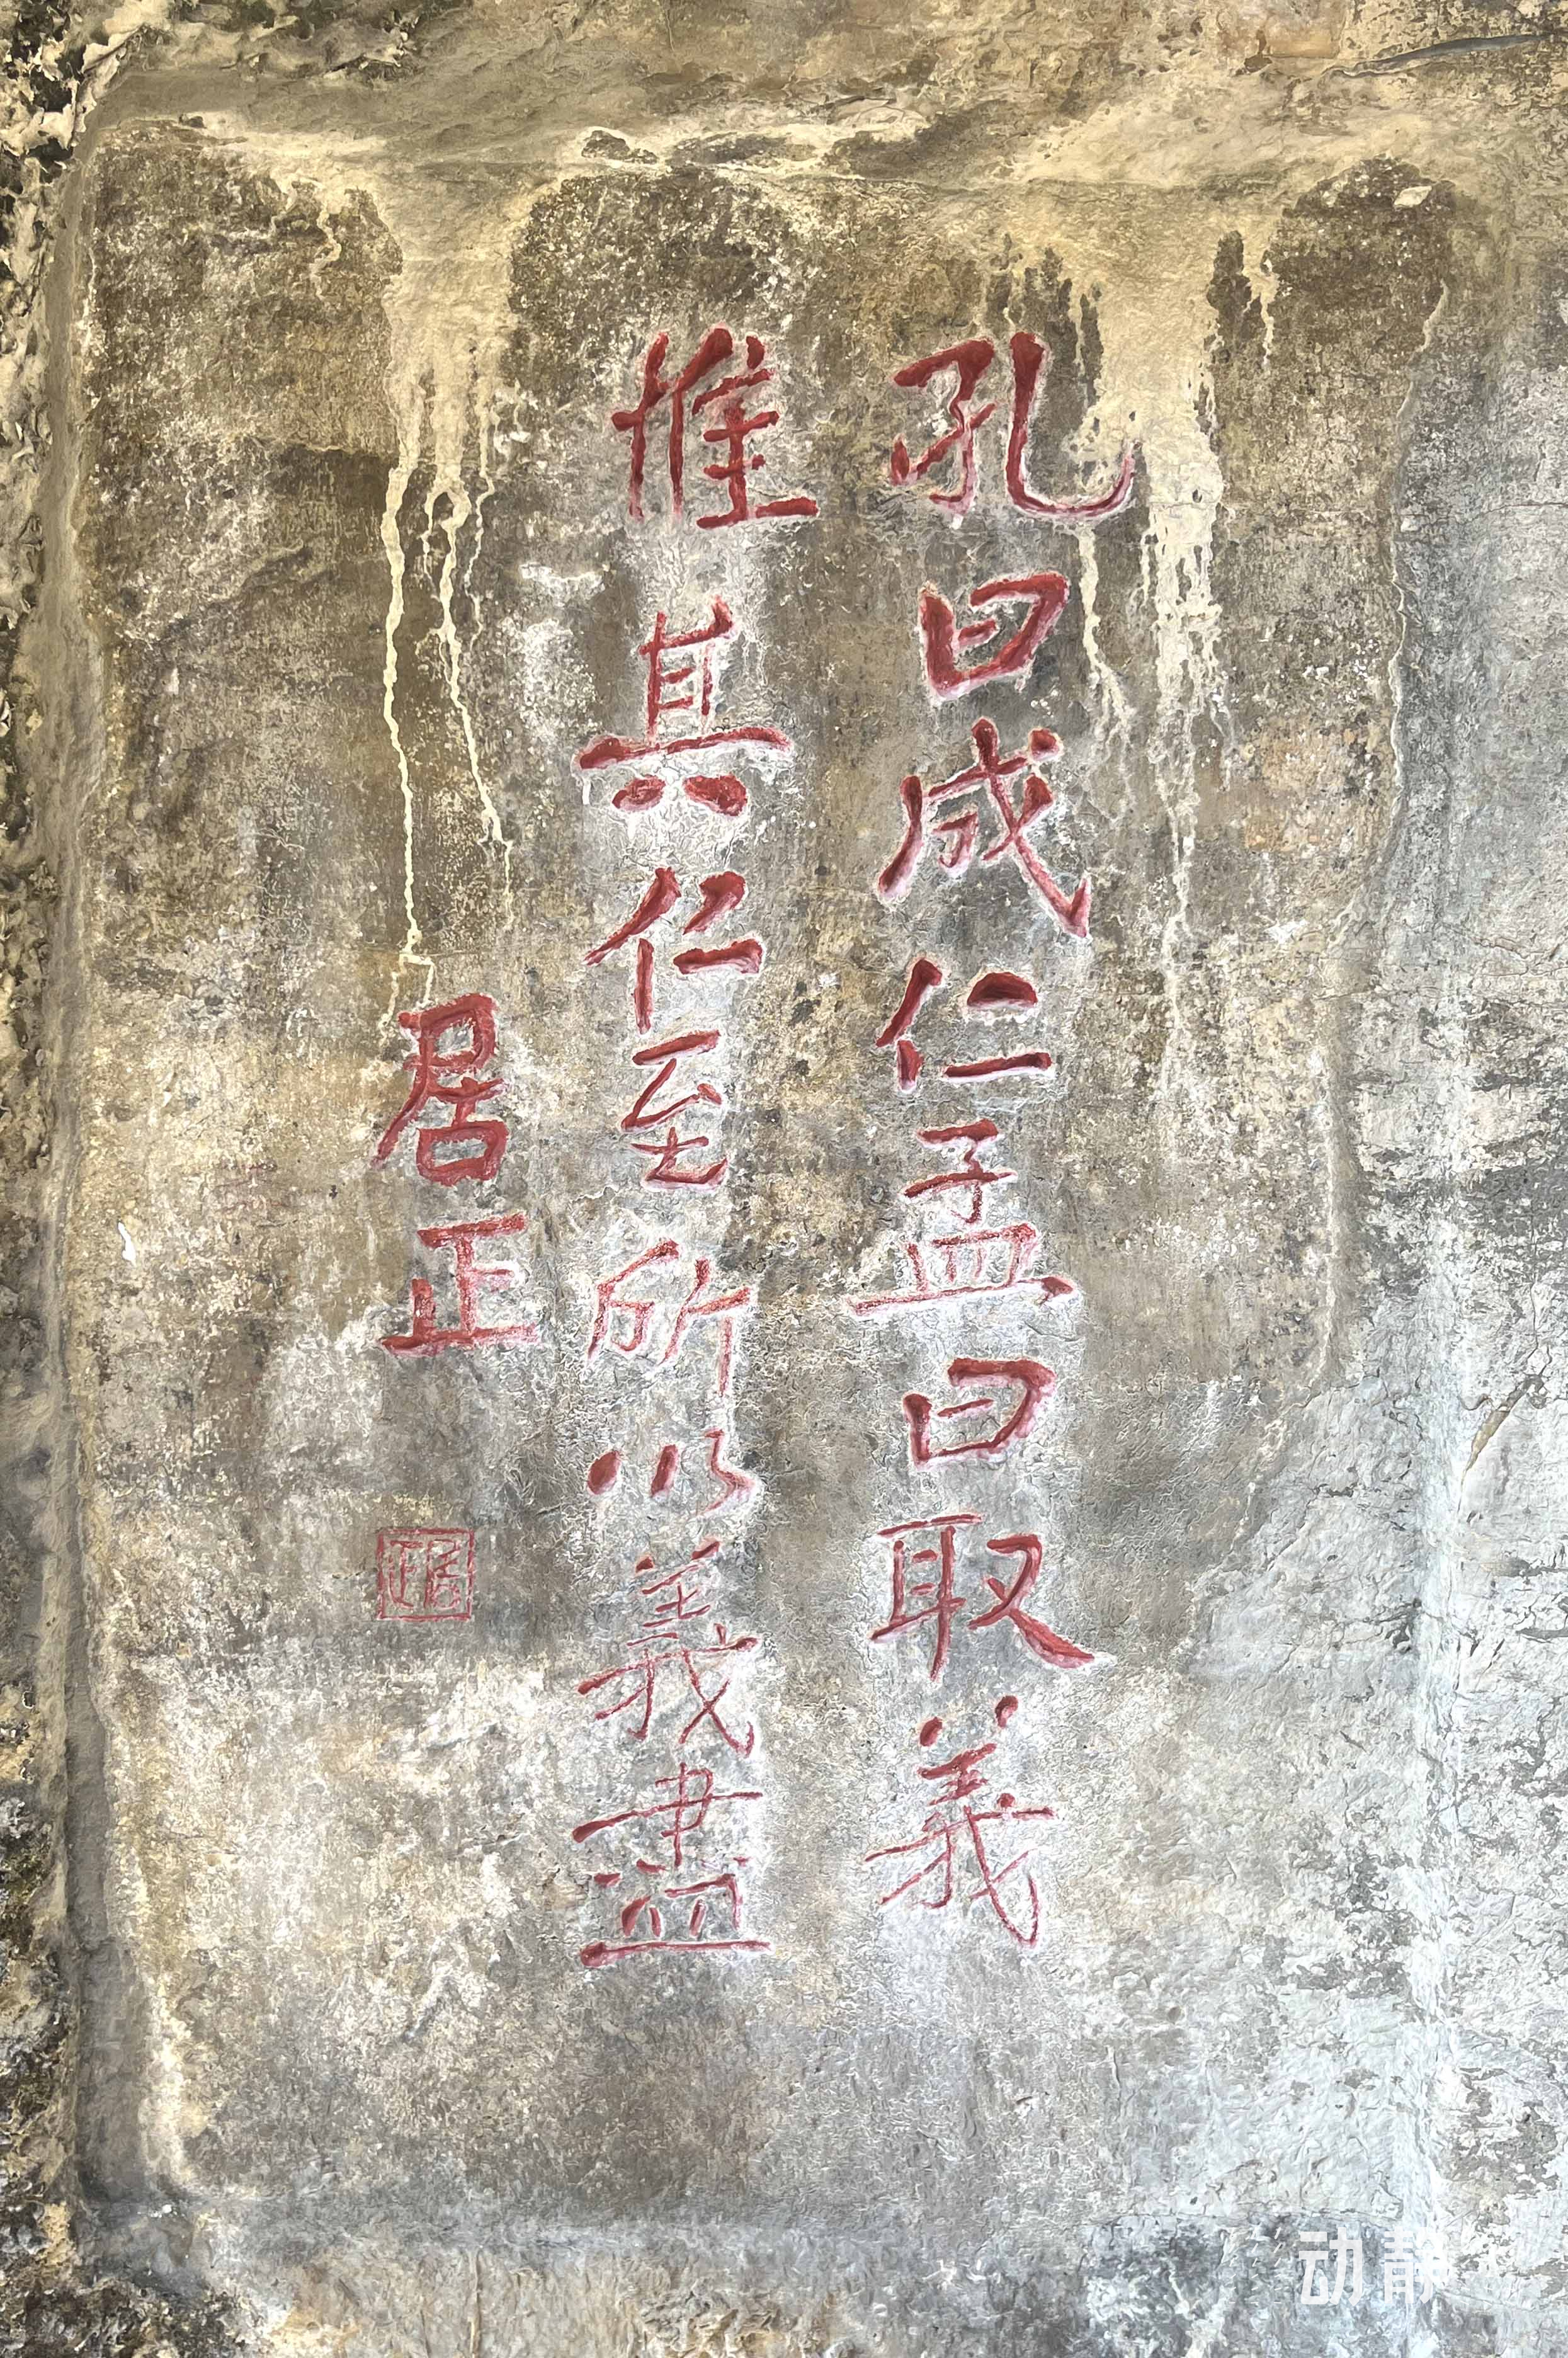 孔曰成仁孟曰取義
惟其仁至所以義盡
居正
居正
动静